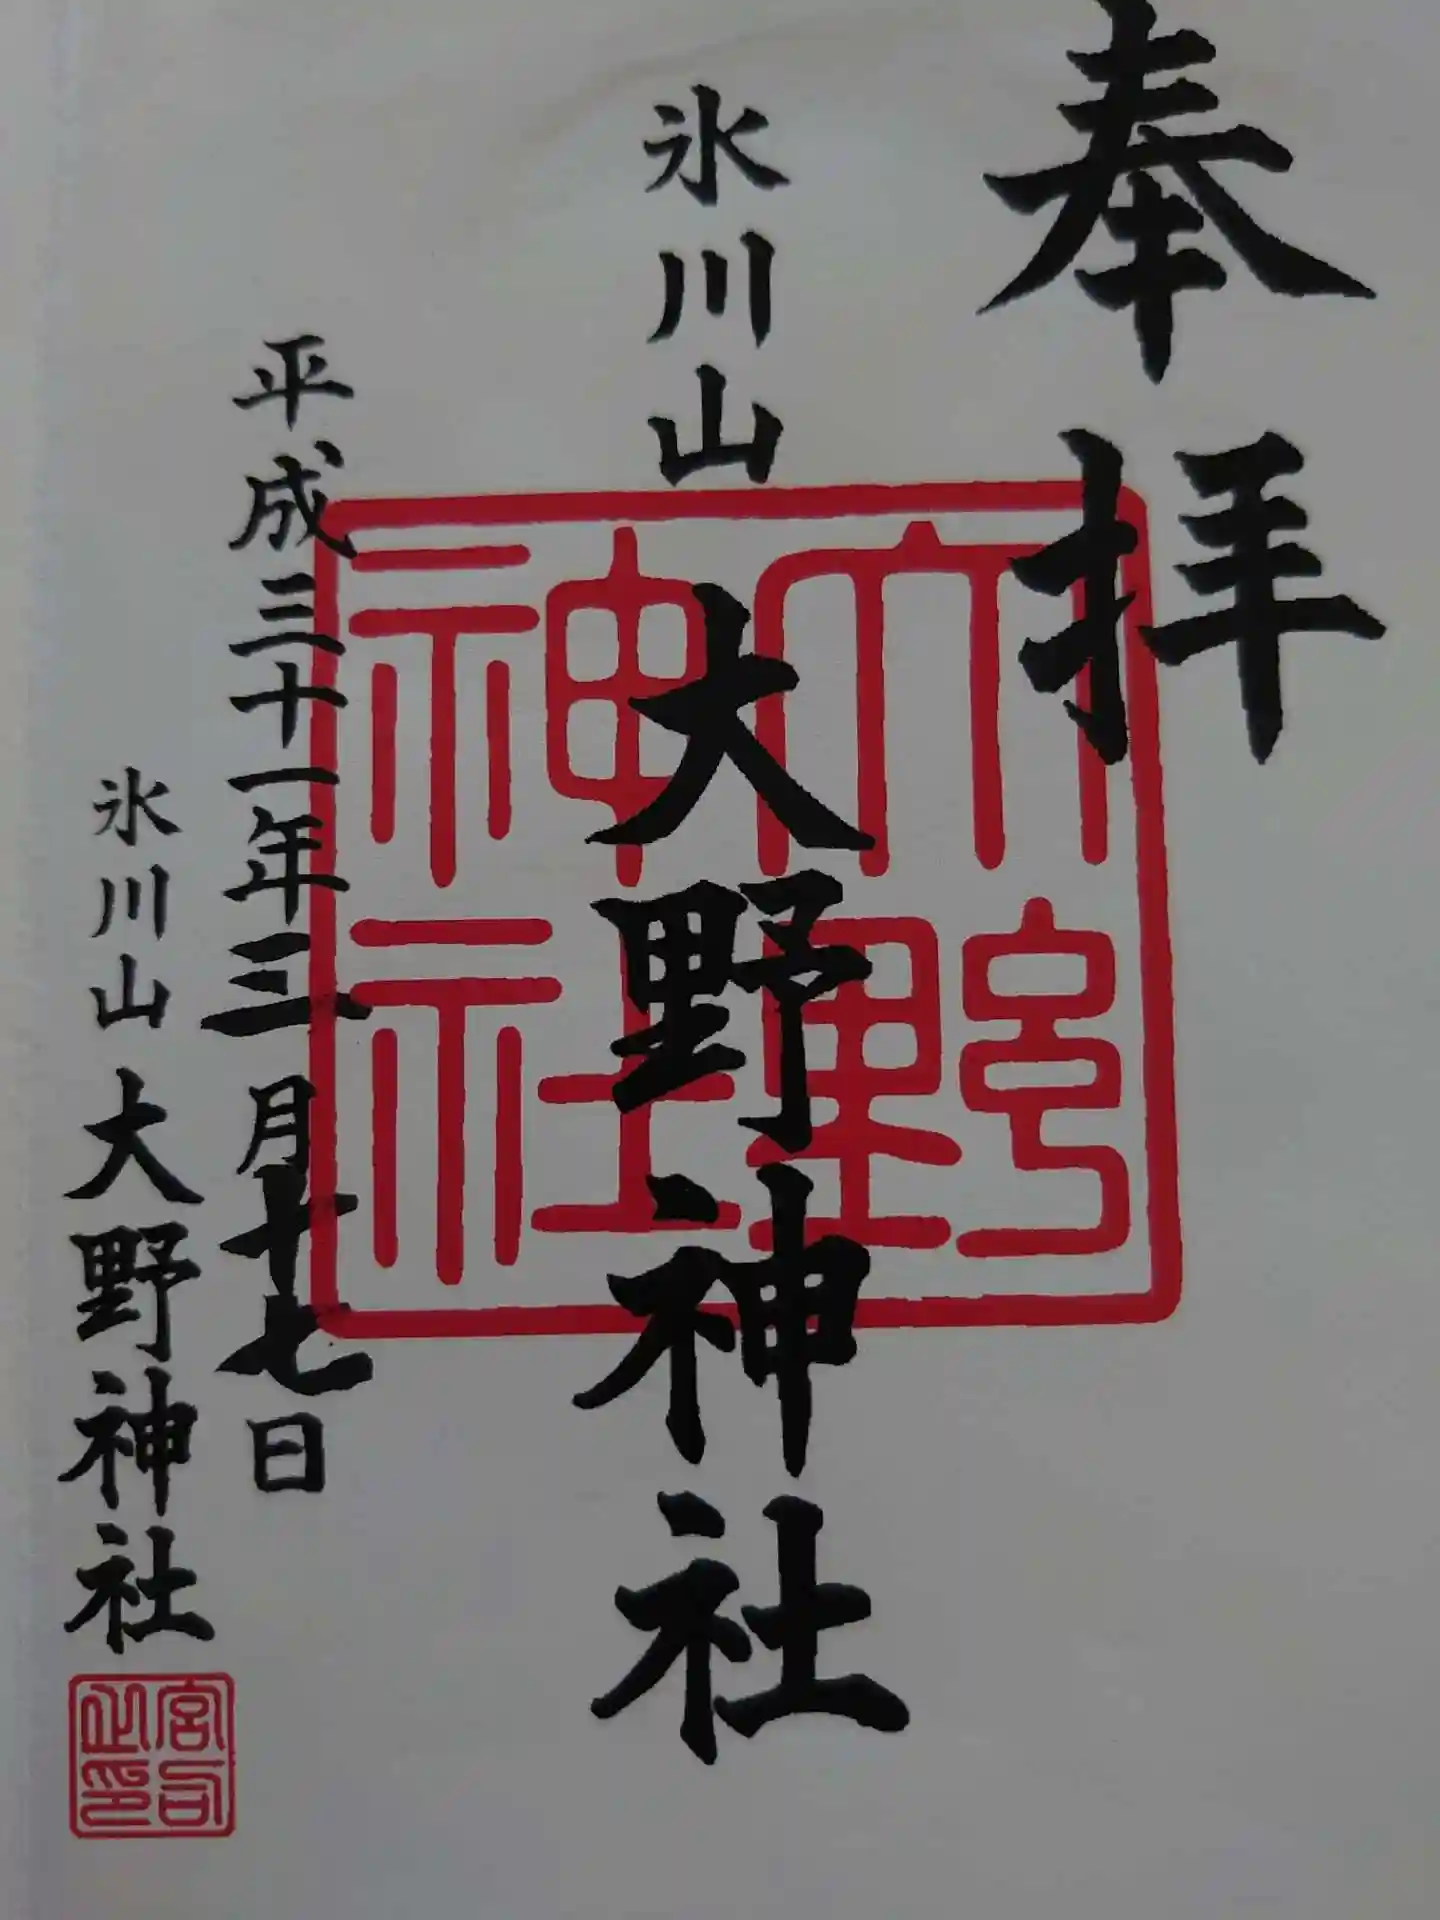 奉拝
氷川山 大野神社
大野
神社
平成三十一年三月十七日
氷川山 大野神社
宮司
之印